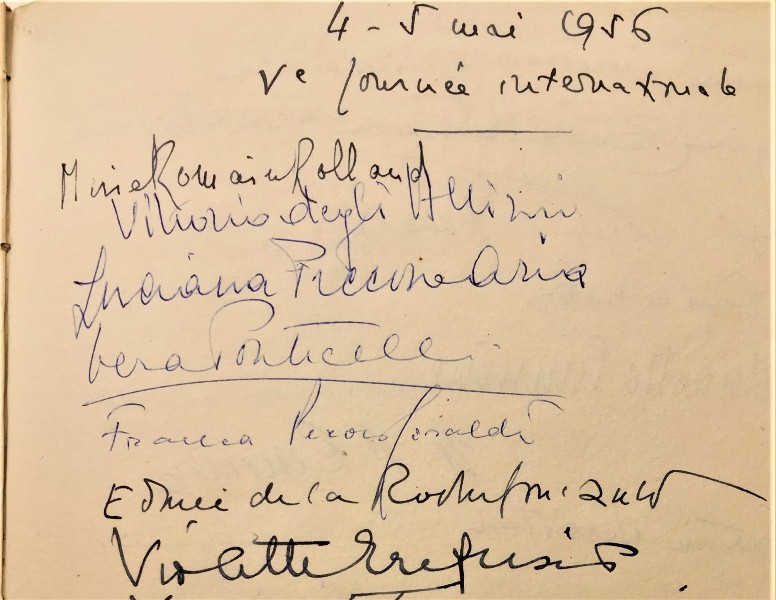 4-5 mai 1956
Ve Journée internationale
Marie Romain Rolland
Vittorio degli
Luciana Piccone Aria
Vera Ponticelli
Franca Giraldi
Edmée de la Rochefoucauld
Violette